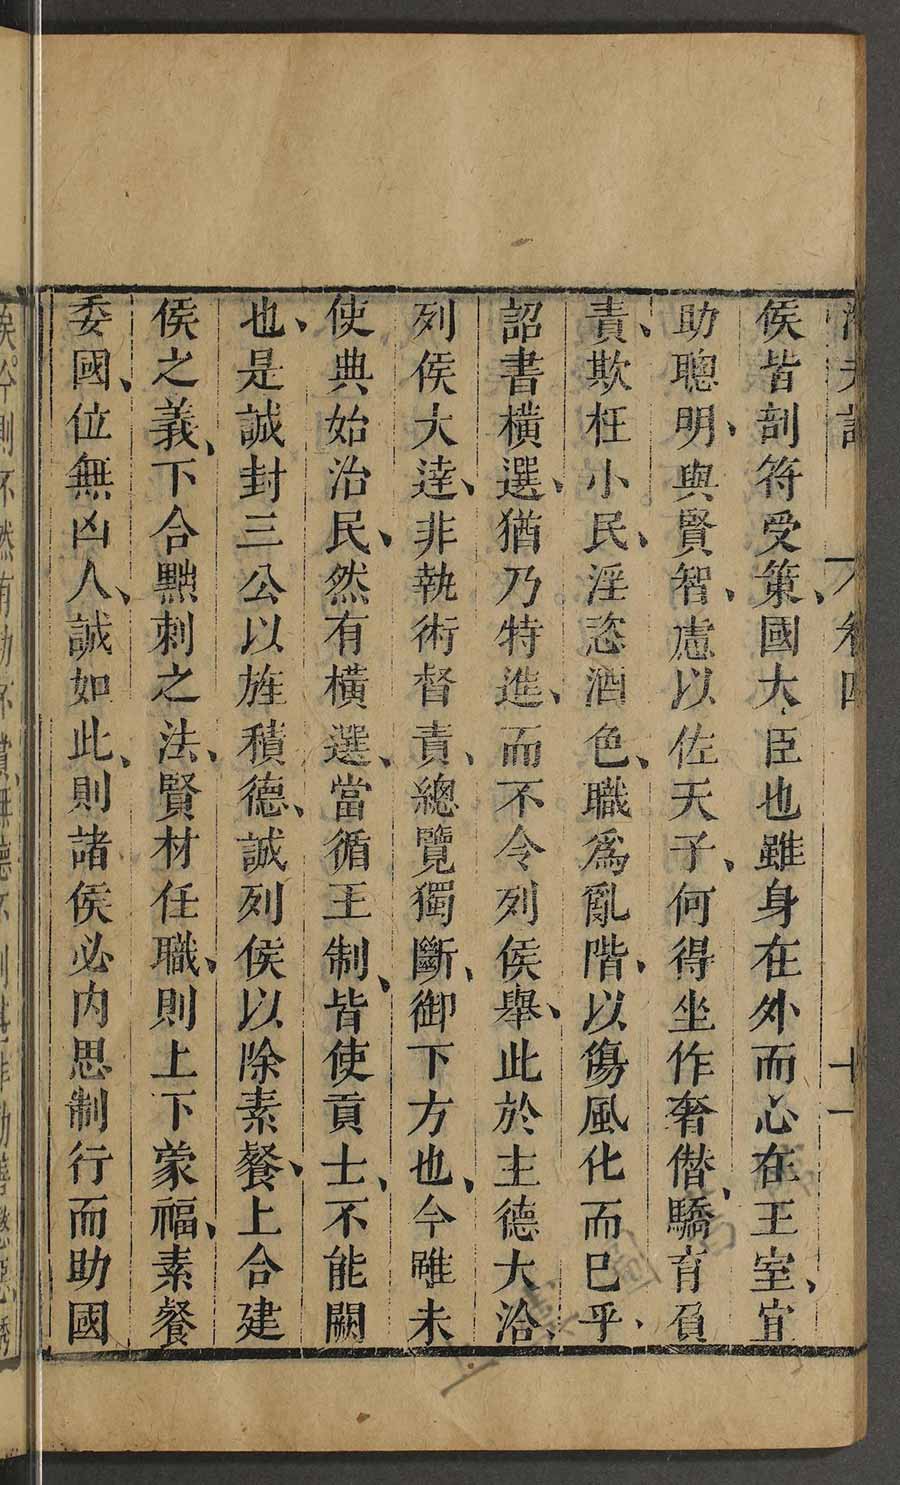 卷四
十一
侯皆剖符受策、國大臣也雖身在外而心在王室、宜
助聰明、與賢智、慮以佐天子、何得坐作奢僭、驕育負
責、欺枉小民、淫恣酒色、職爲亂階、以傷風化而已乎、
詔書橫選、猶乃特進、而不令列侯舉、此於主德大洽、
列侯大達、非執術督責、總覽獨斷、御下方也、今雖未
使典始治民、然有橫選、當循王制、皆使貢士、不能闕
也、是誠封三公以旌積德、誠列侯以除素餐、上合建
侯之義、下合黜刺之法、賢材任職、則上下蒙福、素餐
委國、位無凶人、誠如此、則諸侯必内思制行而助國